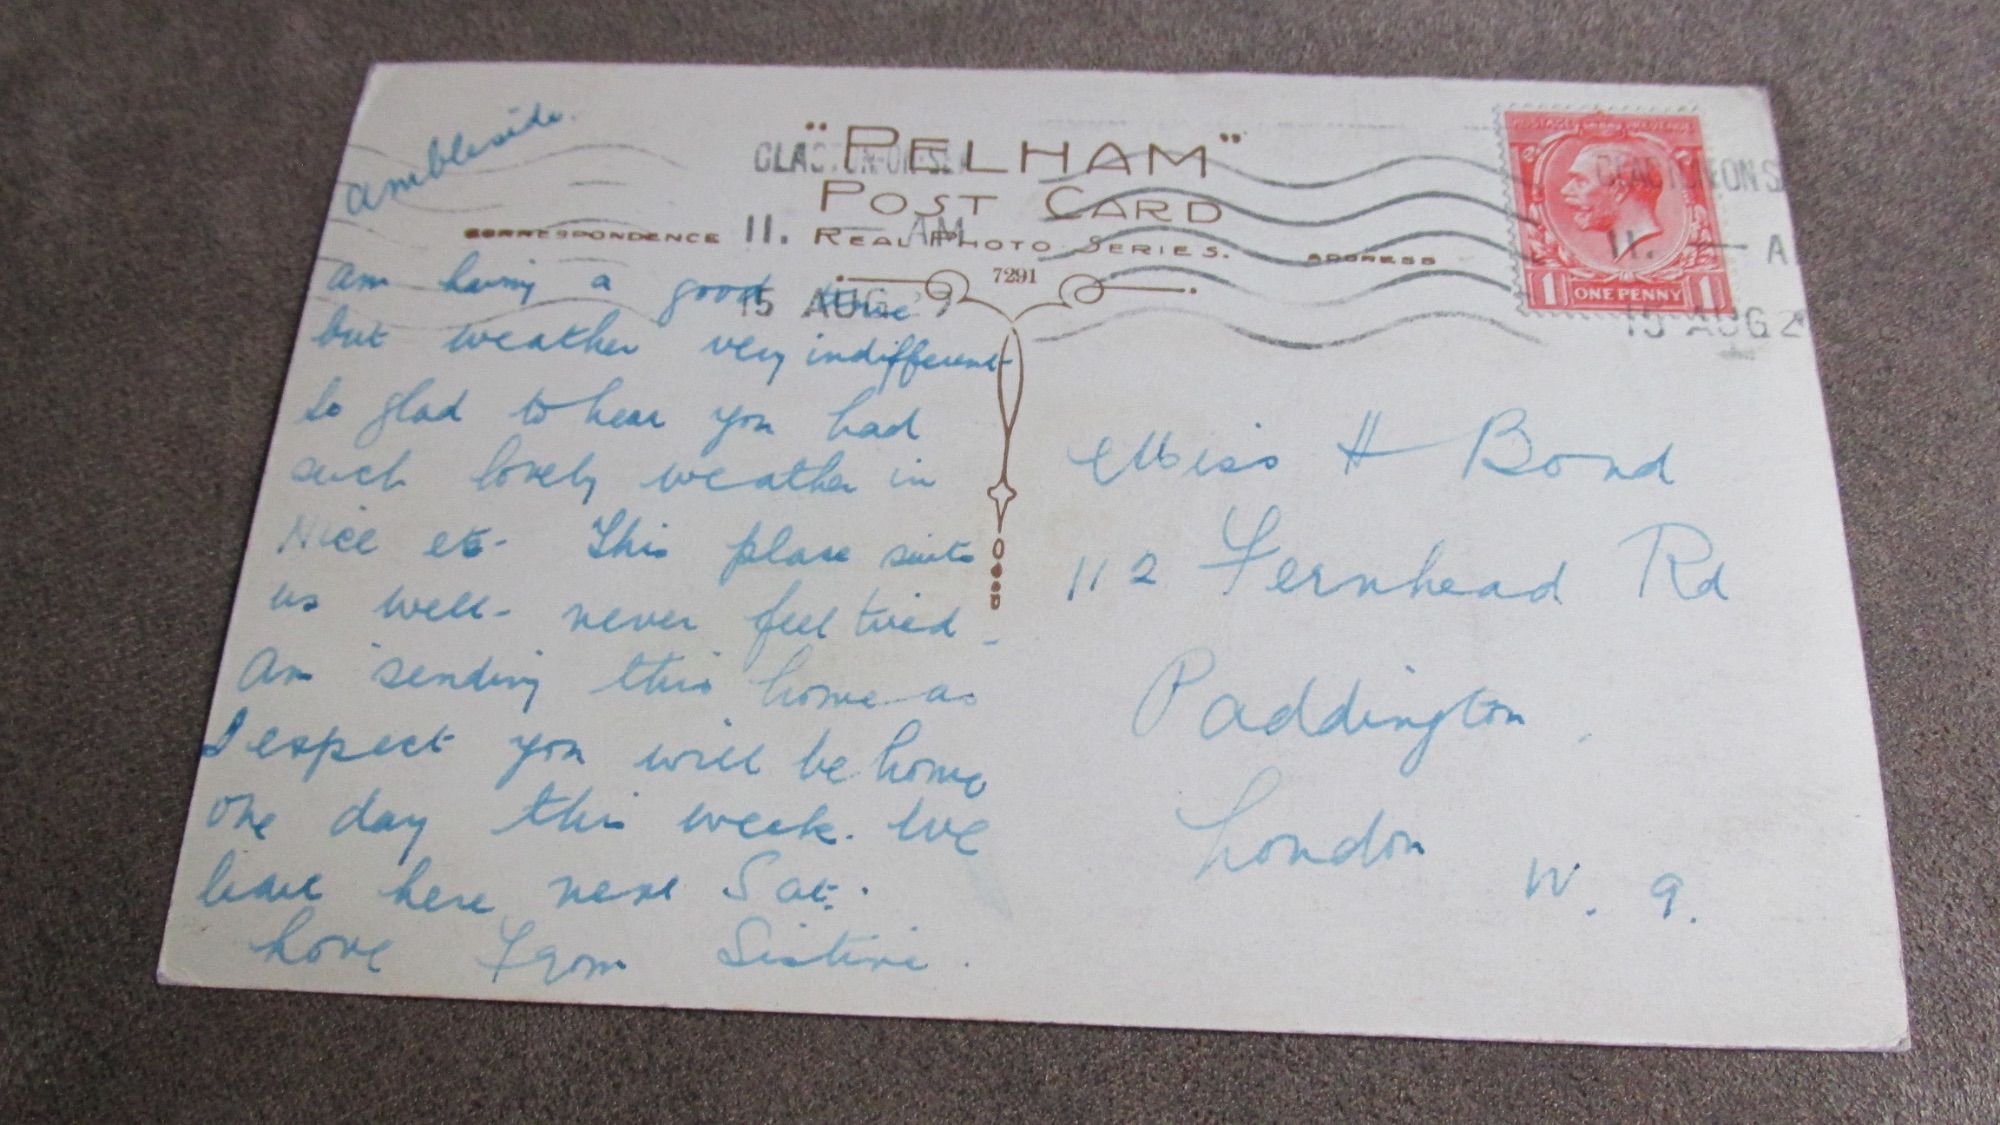 Ambleside.
"PELHAM"
POST CARD
CORRESPONDENCE
REAL PHOTO SERIES.
ADDRESS
7291
CLACTON-ON-SEA
11. — AM
15 AUG 9
CLACTON ON S
11. — A
15 AUG 2
POSTAGE REVENUE
1 ONE PENNY 1
am having a good time
but weather very indifferent
So glad to hear you had
such lovely weather in
Nice etc- This place suits
us well- never feel tired -
Am sending this home as
I expect you will be home
one day this week. We
leave here next Sat.
Love from
Miss H Bond
112 Fernhead Rd
Paddington,
London
W. 9.